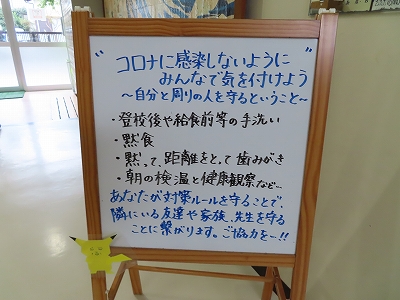 "コロナに感染しないように
みんなで気を付けよう"
～自分と周りの人を守るということ～
・登校後や給食前等の手洗い
・黙食
・黙って、距離をとって歯みがき
・朝の検温と健康観察など～
あなたが対策ルールを守ることで、
隣にいる友達や家族、先生を守る
ことに繋がります。ご協力を～!!